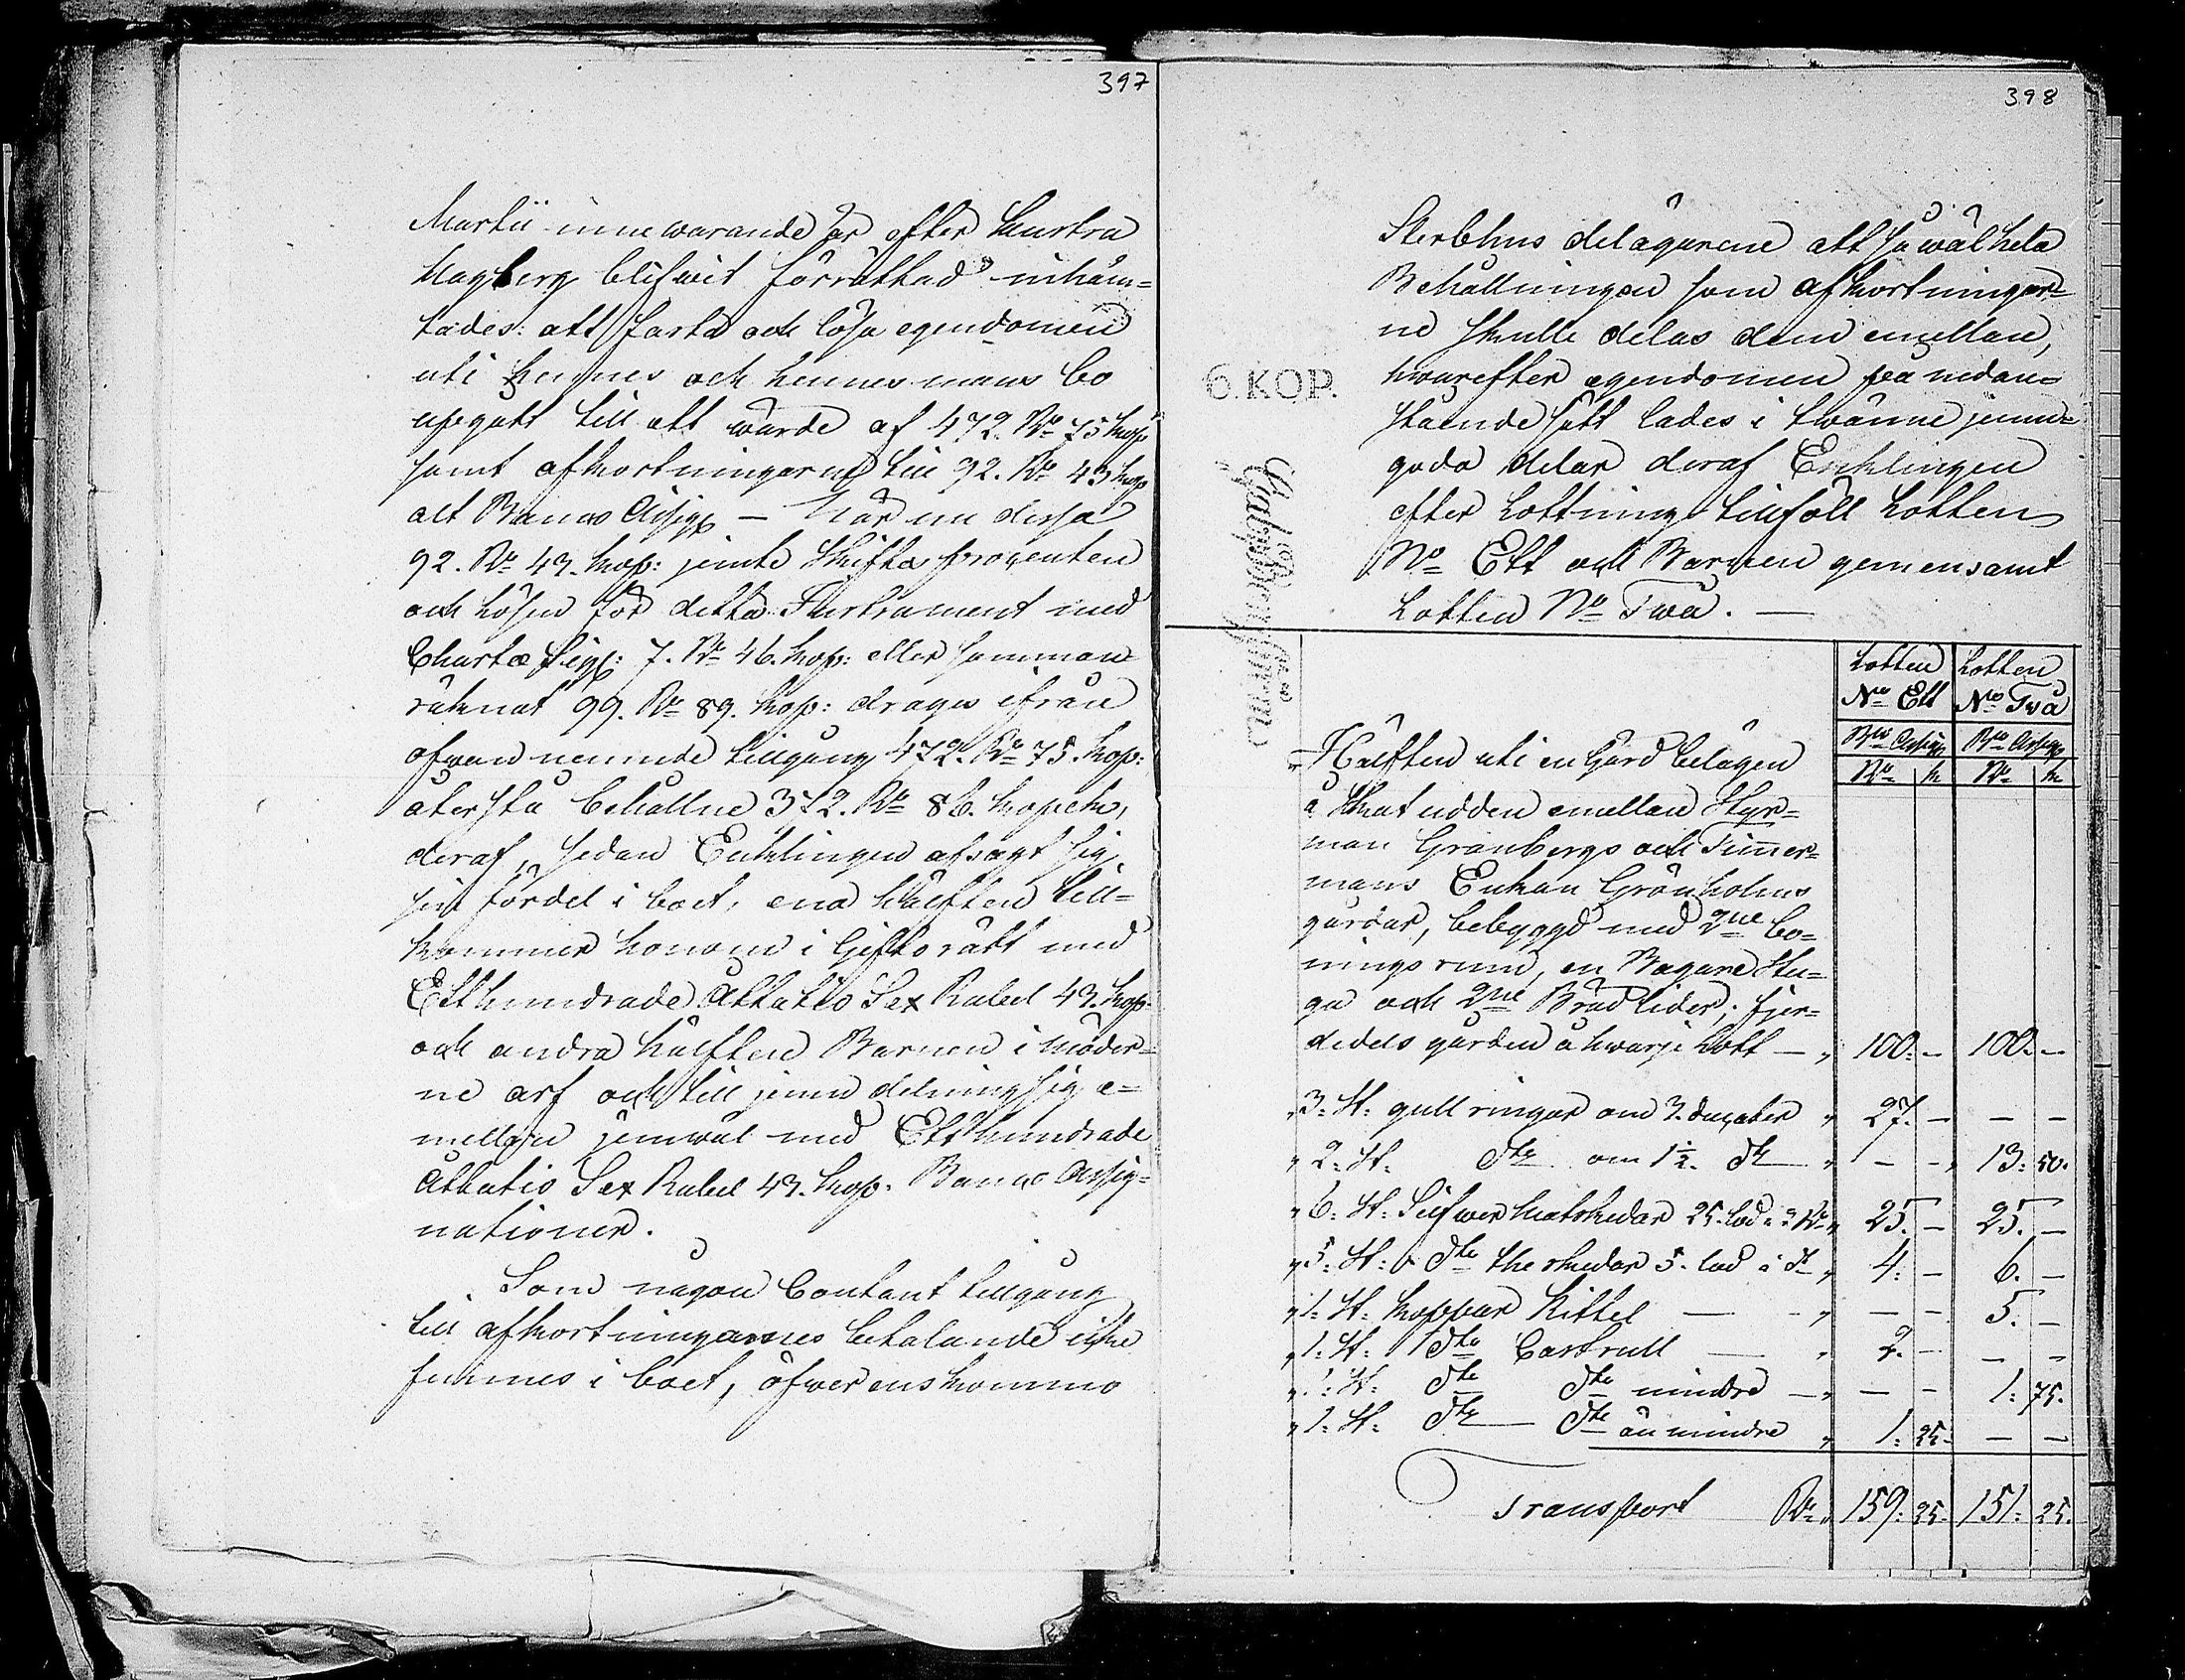 397
Martii innewarande år efter Hustru
Hagberg blifwit förrättad inhäm=
tades: att fasta och lösa egendomen
uti hennes och hennes mans bo
upgått till ett wärde af 472. Ro 75 kop
samt afkortningarne till 92. Ro 43 kop
alt Banco Assign – När nu dessa
92. Ro 43. kop: jemte skiftes procenten
och lösen för detta Instrument med
Charta Sigl: 7. Ro 46. kop: eller samman
räknat 99. Ro 89. kop: drages ifrån
ofwan nemnde tillgång 472. Ro 75. kop:
återstå behållne 372. Ro 86. kopek,
deraf, sedan Enklingen afsagt sig
sin fördel i boet, ena hälften till=
kommer honom i Giftorätt med
Etthundrade Åttatio Sex Rubel 43. kop:
och andra hälften Barnen i möder=
ne arf och till jemn delning sig e=
mellan jemwäl med Etthundrade
Åttatio Sex Rubel 43. kop. Banco Assig=
nationer.
Som någon Contant tillgång
till afkortningarnes betalande icke
finnes i boet, öfwerenskommo
398
Sterbhus delägarene att så wäl hela
Behållningen som afkortningar=
ne skulle delas dem emellan,
hwarefter egendomen på nedan=
stående sätt lades i twänne jemn=
goda delar deraf Enklingen
efter Lottning tillföll Lotten
No Ett och Barnen gemensamt
Lotten No Twå. —
6. KOP.
Lotten Lotten
No Ett No Twå
Bco Assign Bco Assign
Ro k Ro k
" Hälften uti en Gård belägen
å Skatudden emellan Styr=
man Granbergs och Timmer=
mans Enkan Grönholms
gårdar, bebyggd med 2ne bo=
nings rum, en Bagare Stu=
ga och 2ne Bräd lider; fjer=
dedels gården å hwarje Lott — " 100. – 100. –
" 3: St: gull ringar om 3. ducater " 27. – – –
" 2: St: Dto om 1½. Do " – – 13: 50.
" 6: St: Silfwer Matskedar 25. lod a 2 Ro " 25. – 25. –
" 5: St: Dto The skedar 5. lod a Do " 4: – 6. –
" 1: St: koppar Kittel — " – – 5. –
" 1: St: Dto Castrull — " 2. – – –
" 1: St: Dto Dto mindre — " – – 1: 75.
" 1: St: Dto — Dto än mindre " 1: 25. – –
Transport Ro " 159: 25. 151: 25.